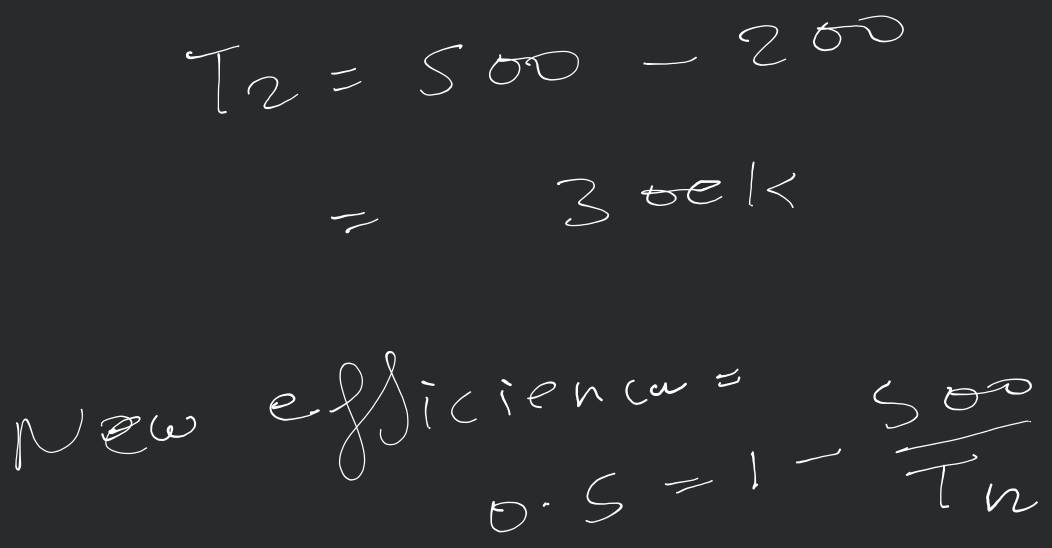 T₂ = 500 - 200
= 300K
New efficienca =
0.5 = 1 - 500/Tn